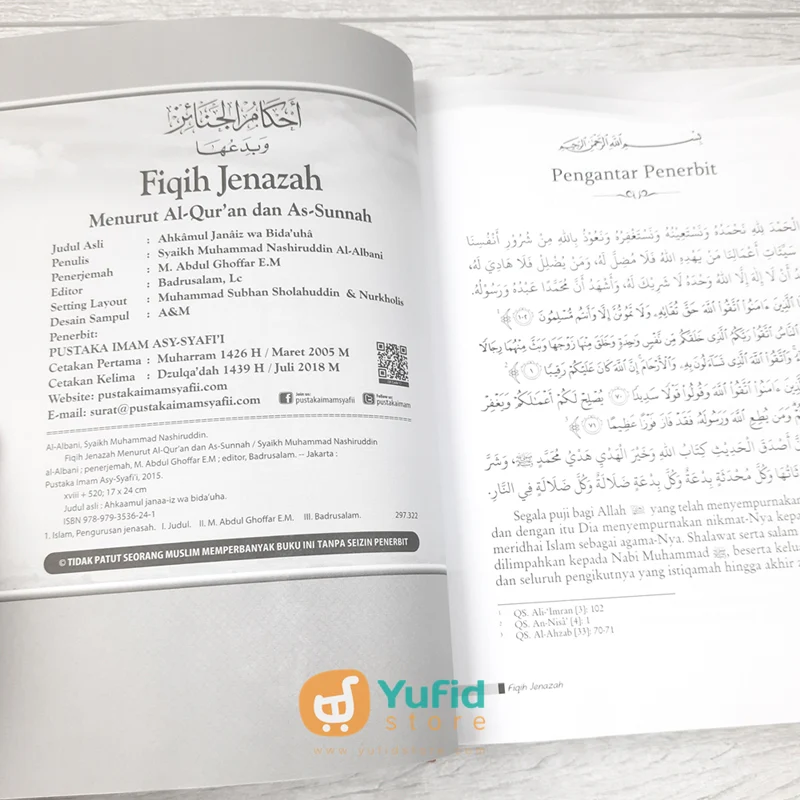 أحكام الجنائز
وبدعها
Fiqih Jenazah
Menurut Al-Qur'an dan As-Sunnah
Judul Asli : Ahkâmul Janâiz wa Bida'uhâ
Penulis : Syaikh Muhammad Nashiruddin Al-Albani
Penerjemah : M. Abdul Ghoffar E.M
Editor : Badrusalam, Lc
Setting Layout : Muhammad Subhan Sholahuddin & Nurkholis
Desain Sampul : A&M
Penerbit:
PUSTAKA IMAM ASY-SYAFI'I
Cetakan Pertama : Muharram 1426 H / Maret 2005 M
Cetakan Kelima : Dzulqa'dah 1439 H / Juli 2018 M
Website: pustakaimamsyafii.com
E-mail: surat@pustakaimamsyafii.com
Join us:
pustakaimamsyafii
Follow us:
pustakaimam
Al-Albani, Syaikh Muhammad Nashiruddin.
Fiqih Jenazah Menurut Al-Qur'an dan As-Sunnah / Syaikh Muhammad Nashiruddin
al-Albani ; penerjemah, M. Abdul Ghoffar E.M ; editor, Badrusalam. -- Jakarta :
Pustaka Imam Asy-Syafi'i, 2015.
xviii + 520; 17 x 24 cm
Judul asli : Ahkaamul janaa-iz wa bida'uha.
ISBN 978-979-3536-24-1
1. Islam, Pengurusan jenasah. I. Judul. II. M. Abdul Ghoffar E.M. III. Badrusalam. 297.322
© TIDAK PATUT SEORANG MUSLIM MEMPERBANYAK BUKU INI TANPA SEIZIN PENERBIT
بسم الله الرحمن الرحيم
Pengantar Penerbit
الْحَمْدَ لِلَّهِ نَحْمَدُهُ وَنَسْتَعِيْنُهُ وَنَسْتَغْفِرُهُ وَنَعُوْذُ بِاللهِ مِنْ شُرُوْرِ أَنْفُسِنَا
سَيِّئَاتِ أَعْمَالِنَا مَنْ يَهْدِهِ اللهُ فَلَا مُضِلَّ لَهُ، وَمَنْ يُضْلِلْ فَلَا هَادِيَ لَهُ،
أَنْ لَا إِلَهَ إِلَّا اللهُ وَحْدَهُ لَا شَرِيْكَ لَهُ، وَأَشْهَدُ أَنَّ مُحَمَّدًا عَبْدُهُ وَرَسُوْلُهُ.
الَّذِينَ ءَامَنُوا اتَّقُوا اللَّهَ حَقَّ تُقَاتِهِ وَلَا تَمُوتُنَّ إِلَّا وَأَنتُم مُّسْلِمُونَ ﴿١٠٢﴾
النَّاسُ اتَّقُوا رَبَّكُمُ الَّذِي خَلَقَكُم مِّن نَّفْسٍ وَاحِدَةٍ وَخَلَقَ مِنْهَا زَوْجَهَا وَبَثَّ مِنْهُمَا رِجَالًا
وَاتَّقُوا اللَّهَ الَّذِي تَسَاءَلُونَ بِهِ وَالْأَرْحَامَ إِنَّ اللَّهَ كَانَ عَلَيْكُمْ رَقِيبًا ﴿١﴾
الَّذِينَ ءَامَنُوا اتَّقُوا اللَّهَ وَقُولُوا قَوْلًا سَدِيدًا ﴿٧٠﴾ يُصْلِحْ لَكُمْ أَعْمَالَكُمْ وَيَغْفِرْ
وَمَن يُطِعِ اللَّهَ وَرَسُولَهُ فَقَدْ فَازَ فَوْزًا عَظِيمًا ﴿٧١﴾
أَصْدَقَ الْحَدِيْثِ كِتَابُ اللهِ وَخَيْرَ الْهَدْيِ هَدْيُ مُحَمَّدٍ ﷺ، وَشَرَّ
وَكُلَّ مُحْدَثَةٍ بِدْعَةٌ وَكُلَّ بِدْعَةٍ ضَلَالَةٌ وَكُلَّ ضَلَالَةٍ فِي النَّارِ.
Segala puji bagi Allah ﷻ yang telah menyempurnakan
dan dengan itu Dia menyempurnakan nikmat-Nya kepa
meridhai Islam sebagai agama-Nya. Shalawat serta salam
dilimpahkan kepada Nabi Muhammad ﷺ, beserta kelua
dan seluruh pengikutnya yang istiqamah hingga akhir z
1 QS. Ali-'Imran [3]: 102
2 QS. An-Nisâ' [4]: 1
3 QS. Al-Ahzab [33]: 70-71
Fiqih Jenazah
Yufid
store